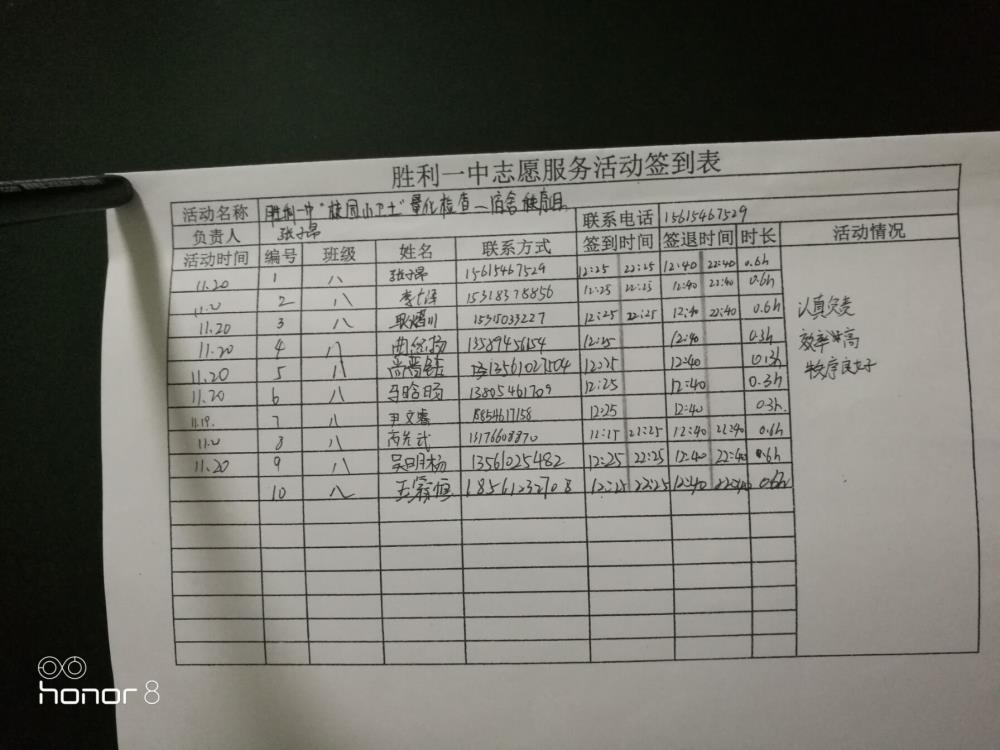 胜利一中志愿服务活动签到表
活动名称 胜利一中"校园小卫士"量化检查—宿舍秩序组 联系电话 15615467529
负责人 张子昂 签到时间 签退时间 时长 活动情况
活动时间 编号 班级 姓名 联系方式
11.20 1 八 张子昂 15615467529 12:25 22:25 12:40 22:40 0.6h
11.20 2 八 15318378856 12:25 22:25 12:40 22:40 0.6h
11.20 3 八 15315033227 12:25 22:25 12:40 22:40 0.6h
11.20 4 八 13589456154 12:25 12:40 0.3h
11.20 5 八 13561027504 12:25 12:40 0.3h
11.20 6 八 马晗旸 13805461709 12:25 12:40 0.3h
11.19. 7 八 尹文睿 18854617158 12:25 12:40 0.3h.
11.20 8 八 13176608870 12:25 22:25 12:40 22:40 0.6h
11.20 9 八 吴明杨 13561025482 12:25 22:25 12:40 22:40 0.6h
10 八 王霖恒 18561232708 12:25 22:25 12:40 22:40 0.6h
认真负责
效率高
秩序良好
honor 8